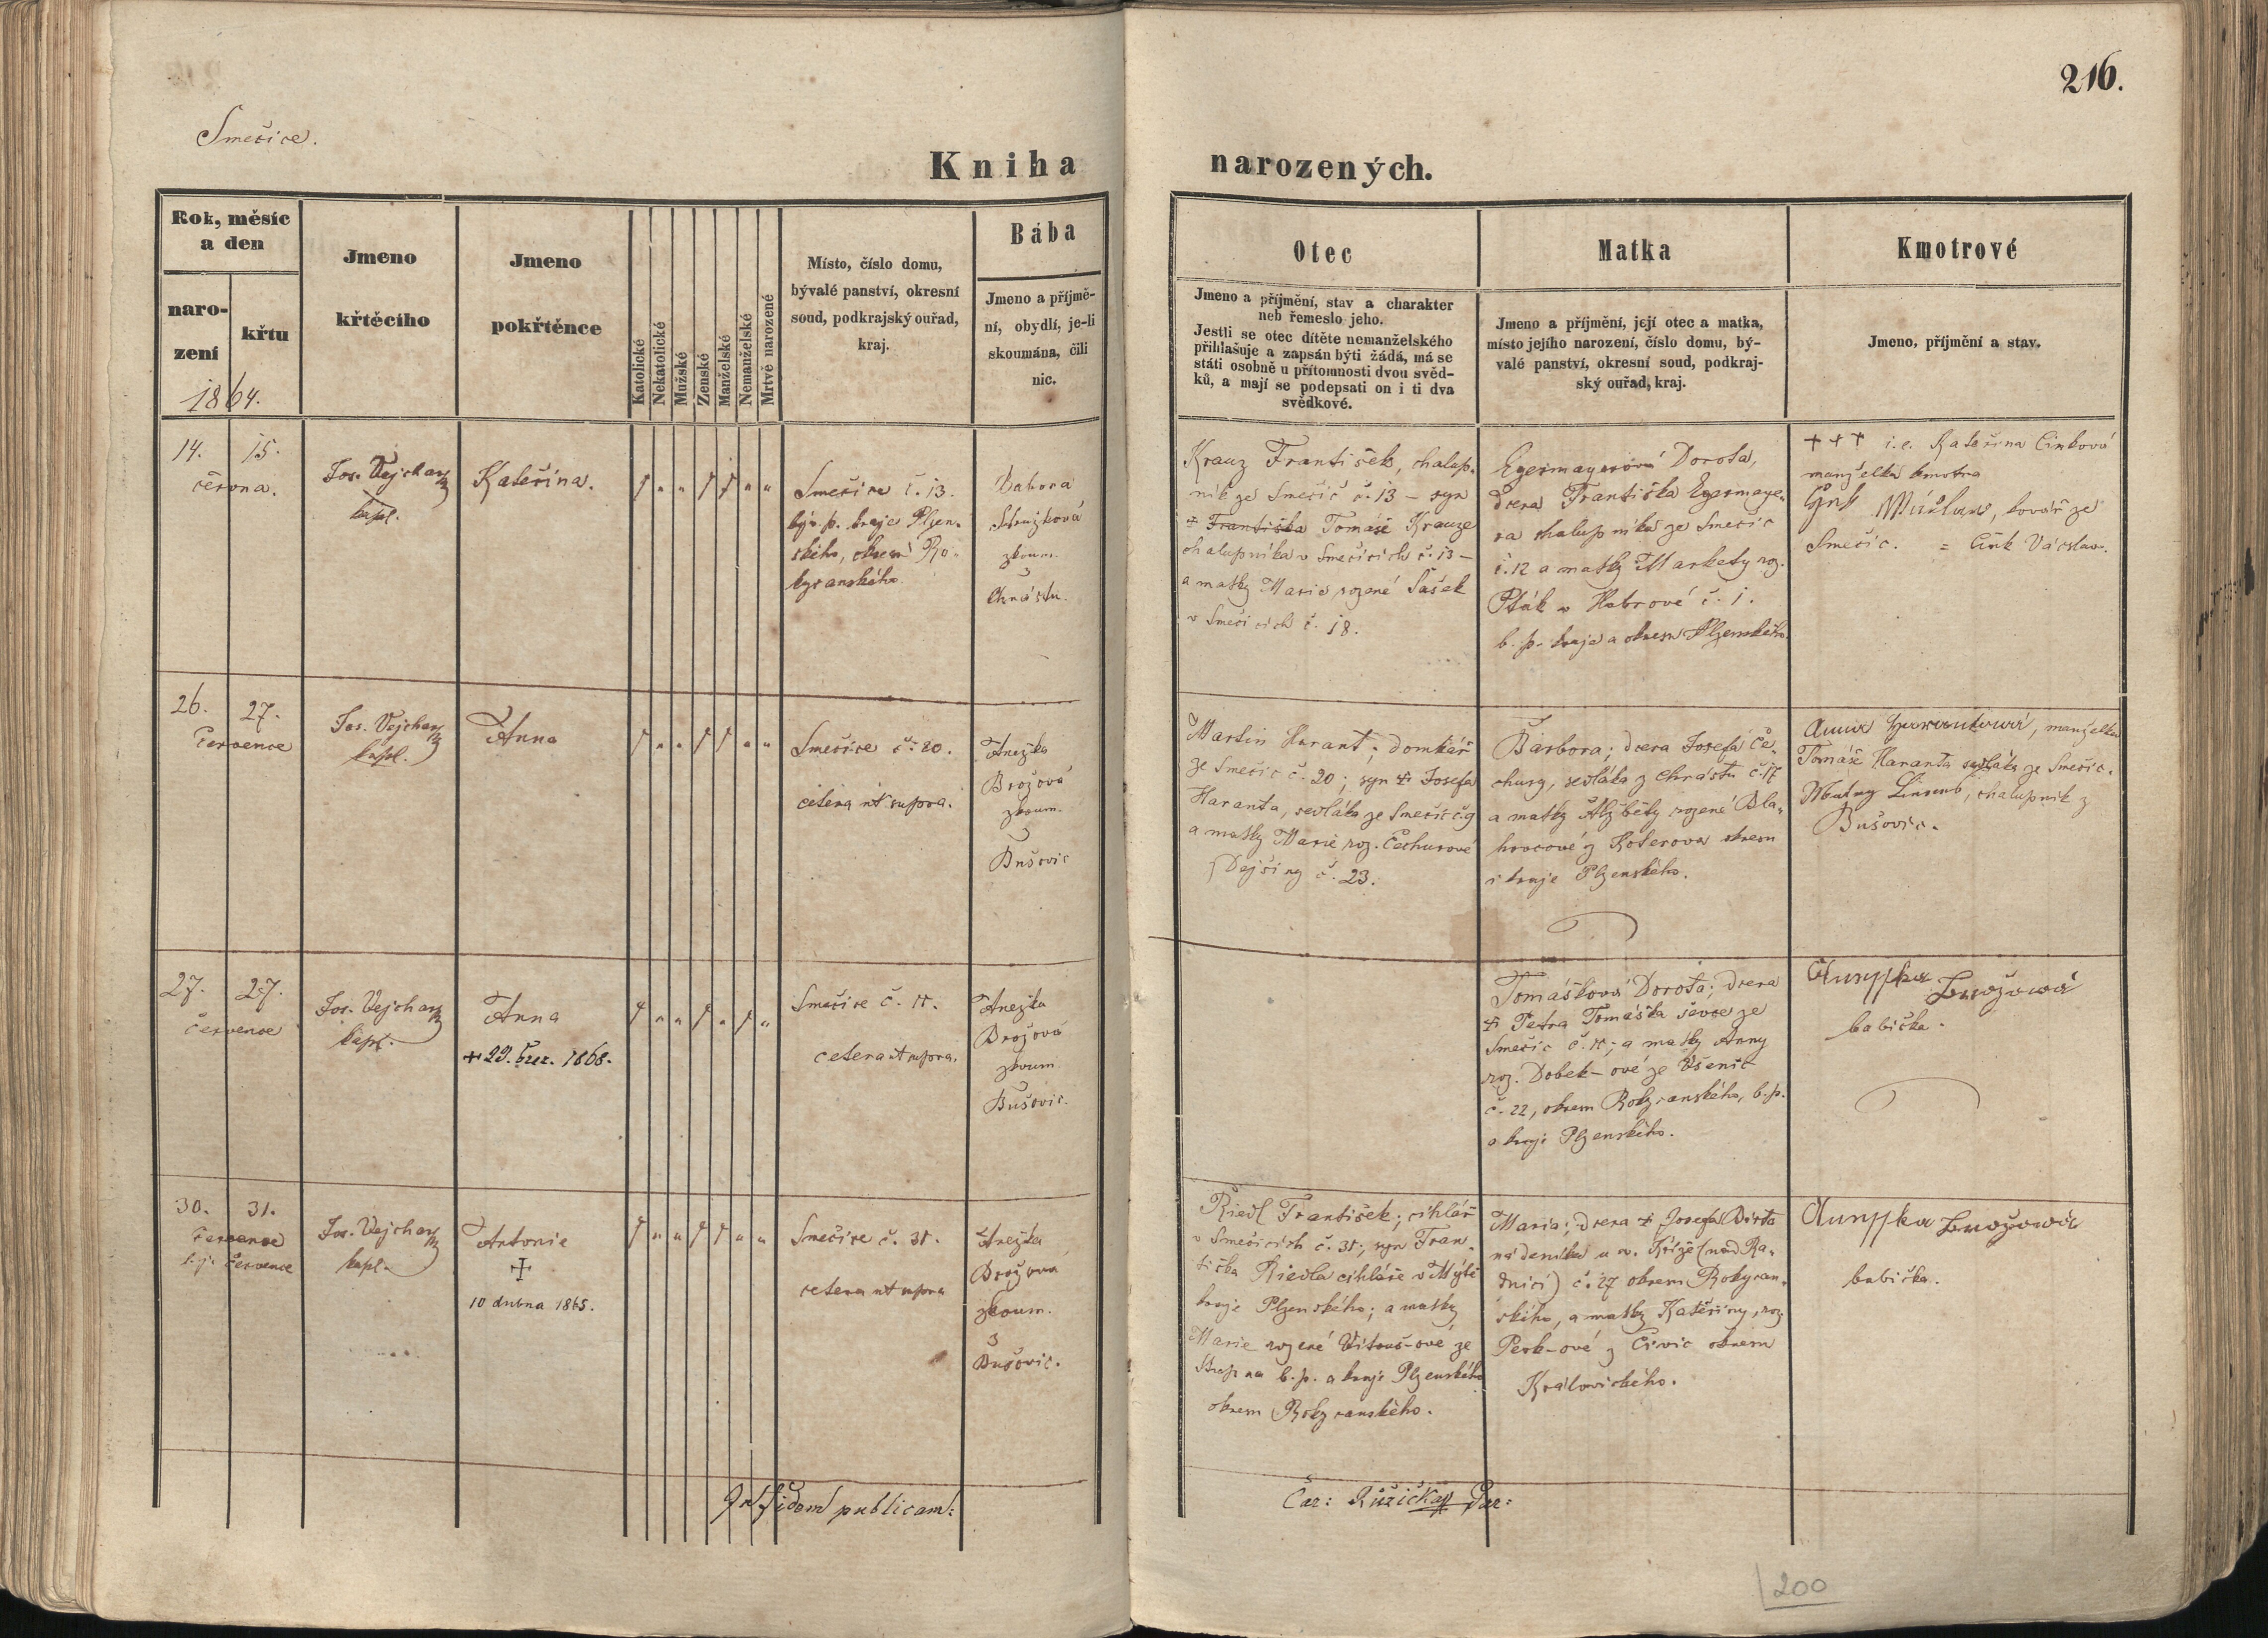 216.
Smečice.
Kniha narozených.
Rok, měsíc
a den
naro-
zení
křtu
1864.
Jmeno
křtěcího
Jmeno
pokřtěnce
Katolické
Nekatolické
Mužské
Ženské
Manželské
Nemanželské
Mrtvě narozené
Místo, číslo domu,
bývalé panství, okresní
soud, podkrajský ouřad,
kraj.
Bába
Jmeno a příjmě-
ní, obydlí, je-li
skoumána, čili
nic.
Otec
Jmeno a příjmění, stav a charakter
neb řemeslo jeho.
Jestli se otec dítěte nemanželského
přihlašuje a zapsán býti žádá, má se
státi osobně u přítomnosti dvou svěd-
ků, a mají se podepsati on i ti dva
svědkové.
Matka
Jmeno a příjmění, její otec a matka,
místo jejího narození, číslo domu, bý-
valé panství, okresní soud, podkraj-
ský ouřad, kraj.
Kmotrové
Jmeno, příjmění a stav.
14. 15.
června.
Jos. Vejchar
kapl.
Kateřina.
Smečice č. 13.
býv. p. kraje Plzen-
ského, okresu Ro-
kycanského.
Babora
Stružková
zkoum.
z
Chrástu.
Krauz František, chalup-
ník ze Smečic č. 13 – syn
✝ Františka Tomáše Krauze
chalupníka v Smečicích č. 13 –
a matky Marie rozené Sašek
v Smečicích č. 18.
Egermayerová Dorota,
dcera Františka Egermaye-
ra chalupníka ze Smečic
č. 12 a matky Markety roz.
Pták v Habrové č. 1.
b. p. kraje a okresu Plzenského.
+ + + i.e. Kateřina Cinková
manželka kmotra
Václav, kovář ze
Smečic. = Cink Václav.
26. 27.
července
Jos. Vejchar
kapl.
Anna
Smečice č. 20.
cetera ut supra.
Anežka
Brožová
zkoum.
z
Bušovic
Martin Harant; domkář
ze Smečic č. 20; syn ✝ Josefa
Haranta, sedláka ze Smečic č. 9
a matky Marie roz. Čechurové
z Dejšiny č. 23.
Barbora; dcera Josefa Če-
chury, sedláka z Chrástu č. 17
a matky Alžběty rozené Bla-
hovcové z Koterova okresu
i kraje Plzenského.
Anna Harantová, manželka
Tomáše Haranta sedláka ze Smečic.
chalupník z
Bušovic.
27. 27.
července
Jos. Vejchar
kapl.
Anna
+ 29. břez. 1868.
Smečice č.
cetera ut supra.
Anežka
Brožová
zkoum.
Bušovic.
Tomášková Dorota; dcera
✝ Petra Tomáška ševce ze
Smečic č. ; a matky Anny
roz. Dobek-ové ze Všenic
č. 22, okresu Rokycanského, b. p.
a kraje Plzenského.
Anežka Brožová
babička.
30. 31.
července
t. j. července
Jos. Vejchar
kapl.
Antonie
✝
10 dubna 1865.
Smečice č. 31.
cetera ut supra
Anežka
Brožová
zkoum.
z
Bušovic.
Riedl František; cihlář
v Smečicích č. 31; syn Fran-
tiška Riedla cihláře v Mýtě
kraje Plzenského; a matky
Marie rozené Vitouš-ové ze
b. p. a kraje Plzenského
okresu Rokycanského.
Maria; dcera ✝ Josefa
nádeníka u sv. Kříže (nad Ra-
dnicí) č. 27 okresu Rokycan-
ského, a matky Kateřiny, roz.
Pech-ové z okresu
Kralovického.
Anežka Brožová
babička.
In fidem publicam:
Čas: Růžička Par:
200